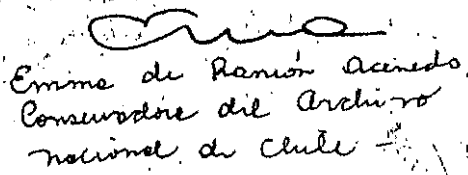 Emma de Ramón Acevedo
Conservadora del Archivo
nacional de Chile